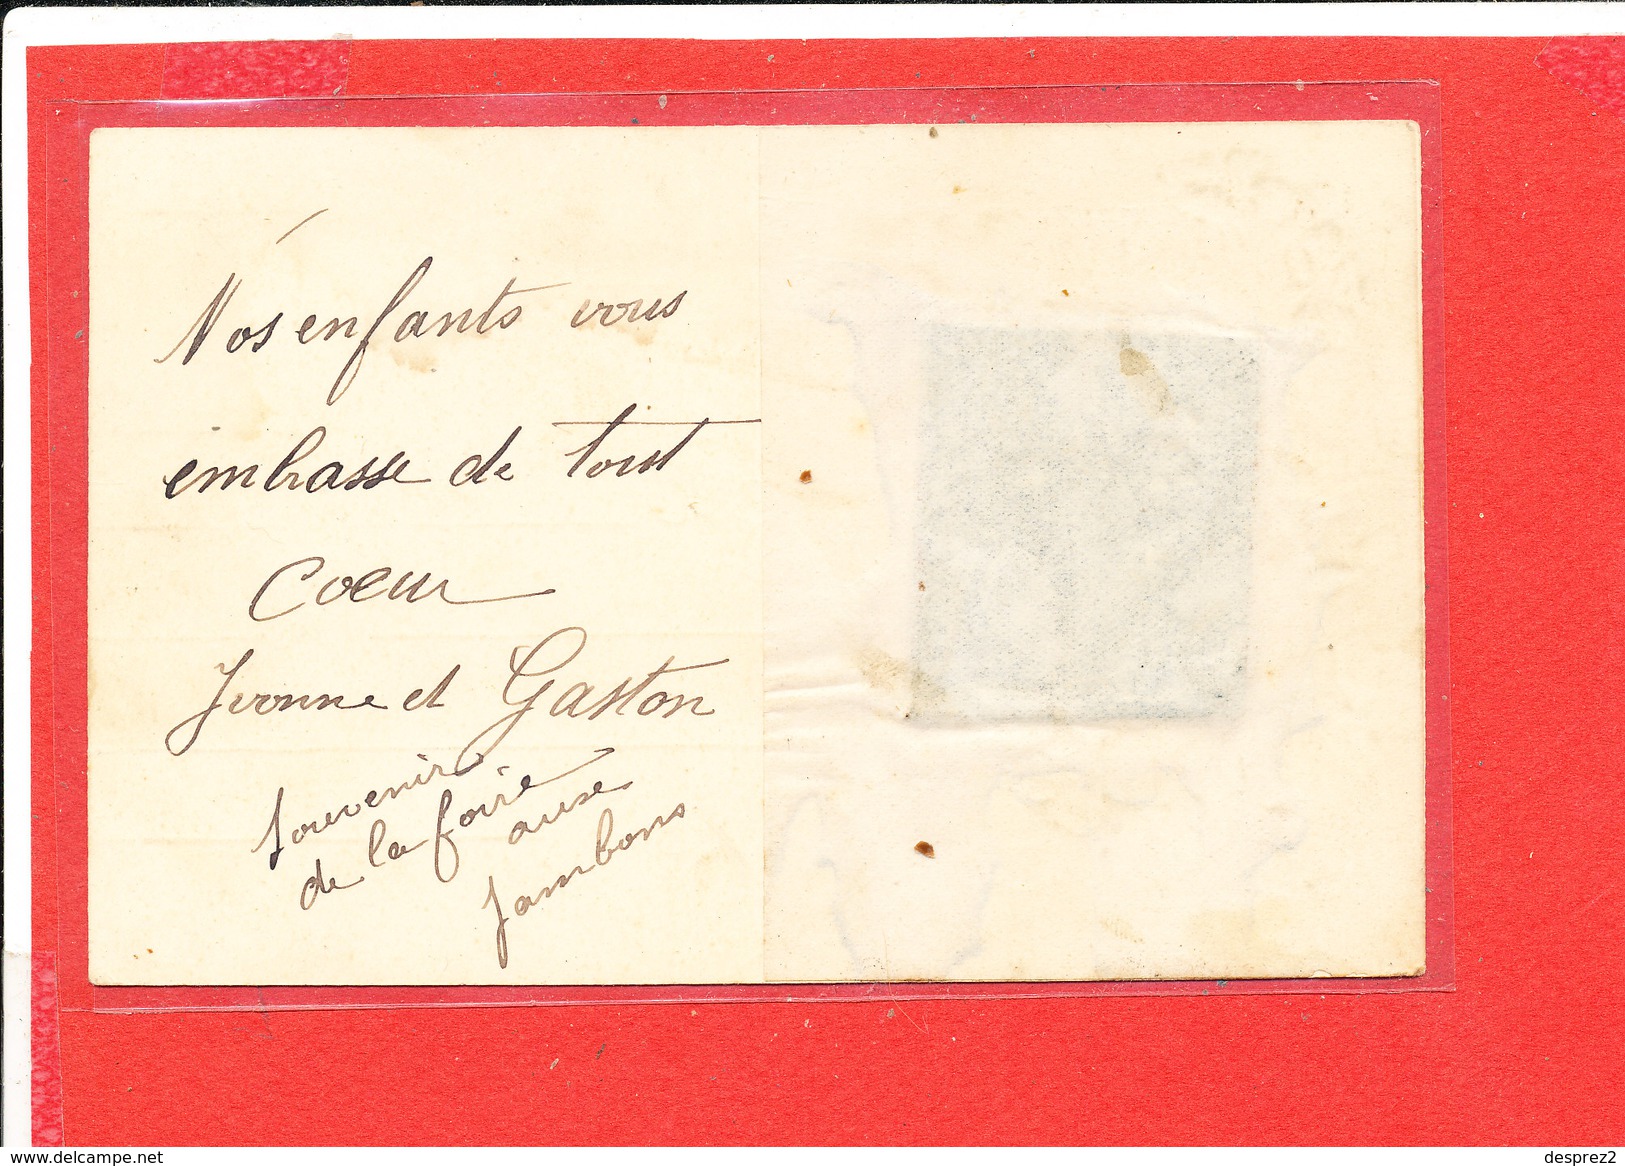 Nos enfants vous
embrasse de tout
Coeur
Yvonne et Gaston
Souvenir
de la foire
auxe
Jambons
www.delcampe.net
desprez2